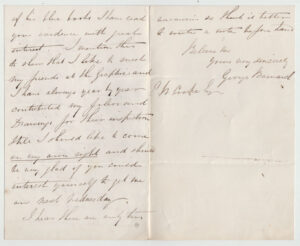 of his blue books I have read
your evidence with greater
interest. I mention this
to show that I like to
my friends at the graphic and
I have always year by year
contributed my
drawings for their inspection
Still I should like to come
on my own right and should
be very glad if you could
interest yourself to get me
next Wednesday
I hear there are only three
vacancies so think it better
to write a note before hand
Believe me
Yours very sincerely
George Barnard
E W Cooke Esq